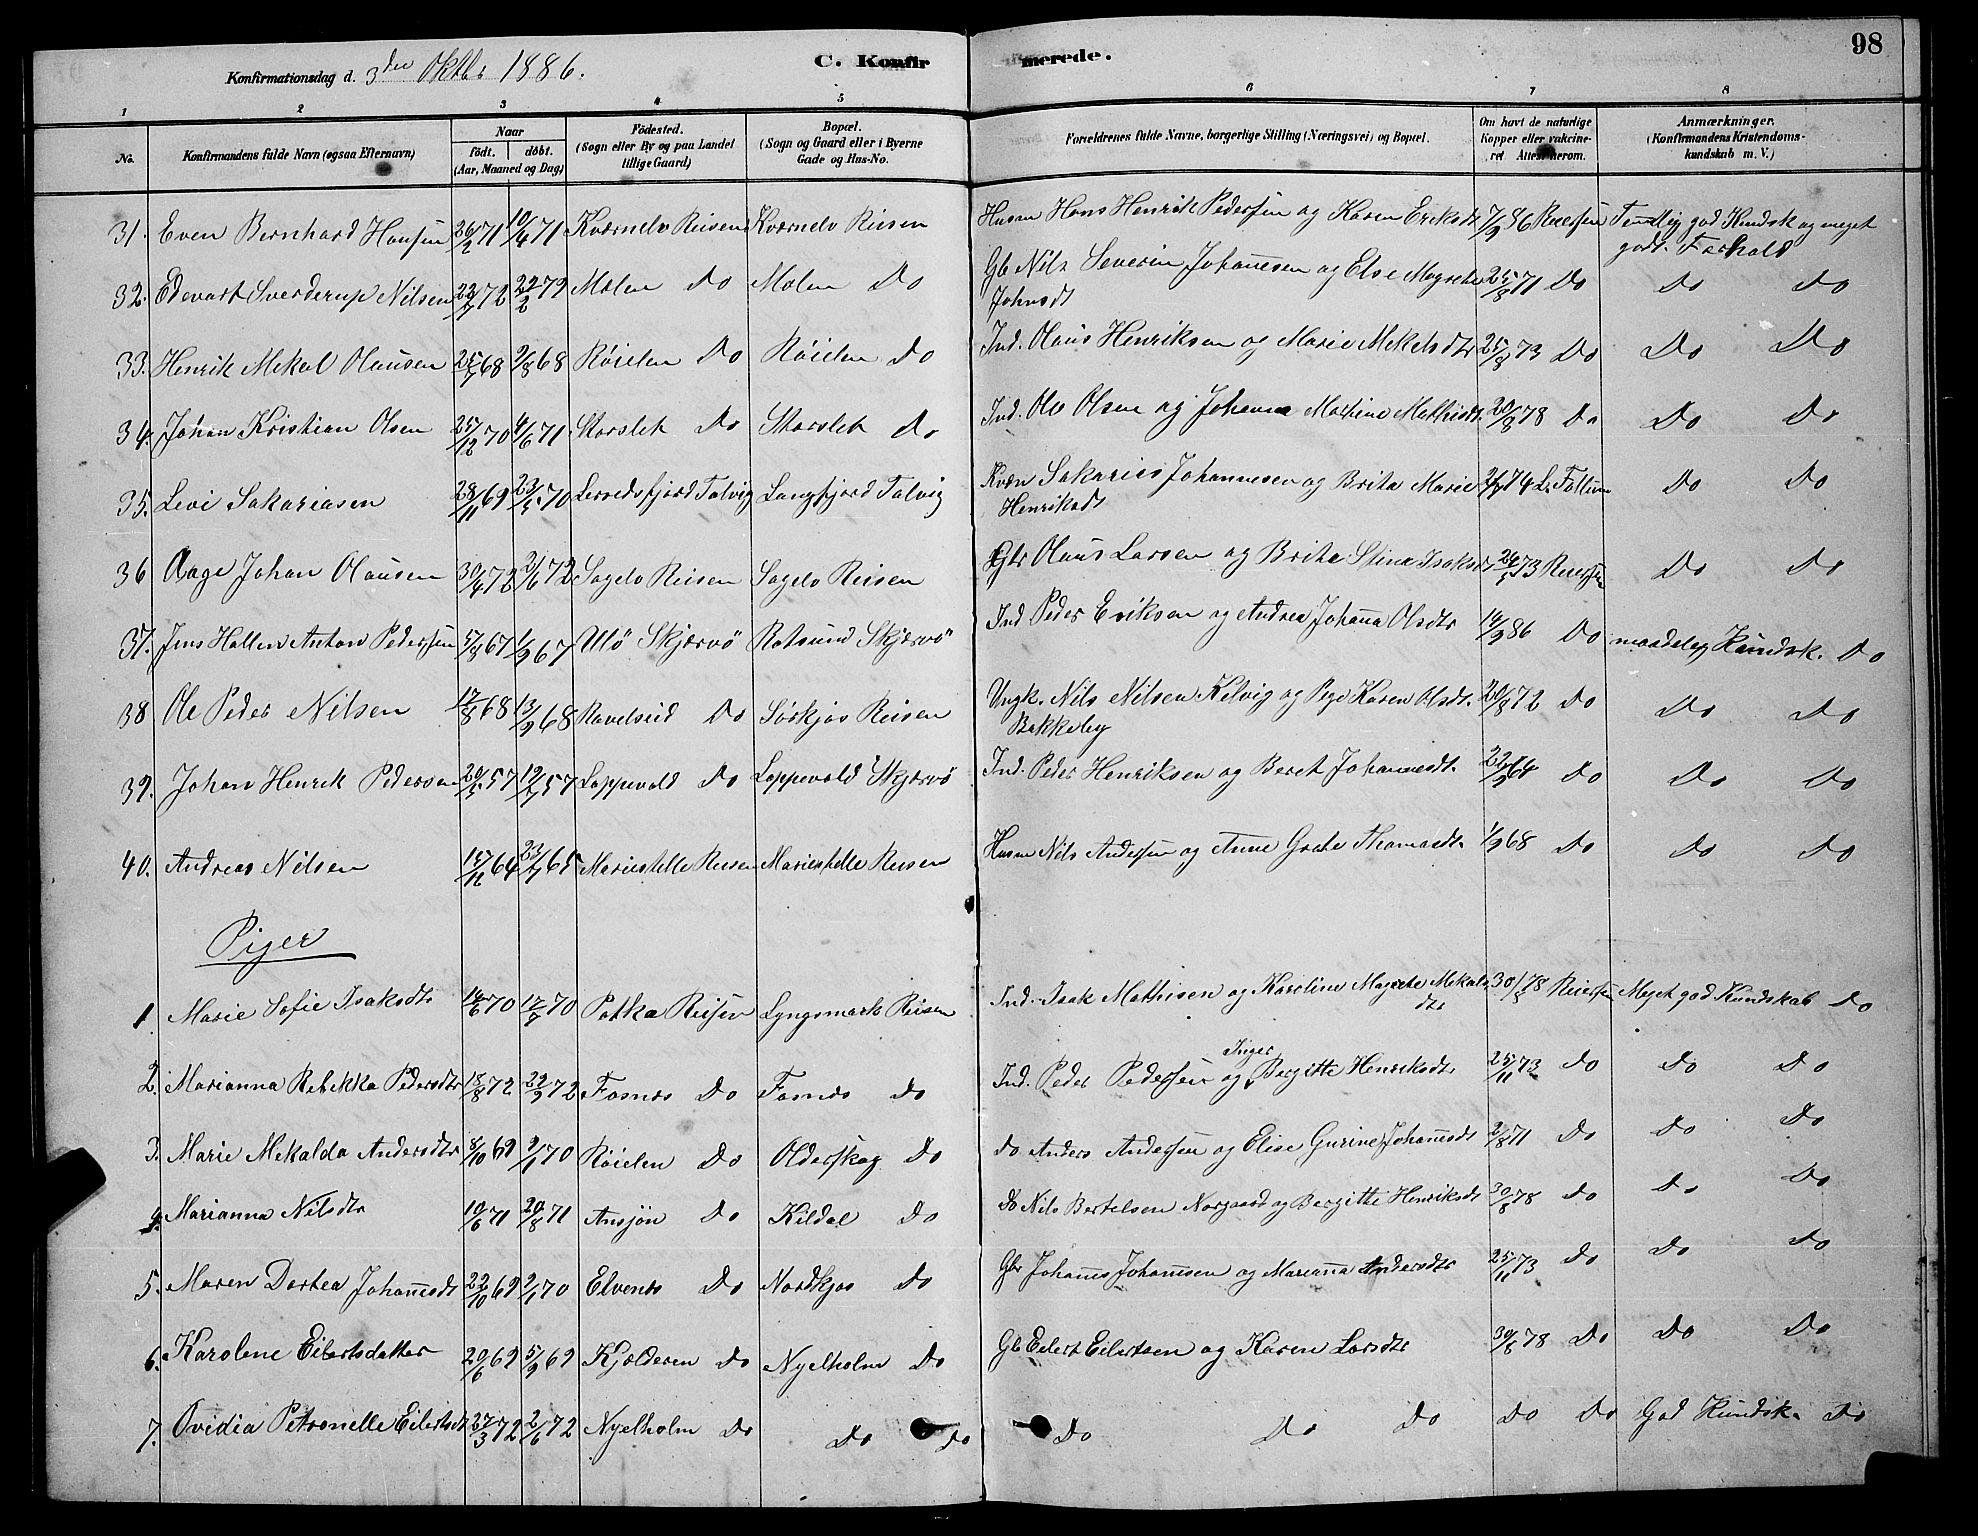 98
Konfirmationsdag d. 3die Oktbr 1886.
C. Konfirmerede.
1 2 3 4 5 6 7 8
No. Konfirmandens fulde Navn (ogsaa Efternavn) Naar født. døbt. (Aar, Maaned og Dag) Födested. (Sogn eller By og paa Landet tillige Gaard) Bopæl. (Sogn og Gaard eller i Byerne Gade og Hus-No. Forældrenes fulde Navne, borgerlige Stilling (Næringsvei) og Bopæl. Om havt de naturlige Kopper eller vakcineret Attest derom. Anmærkninger. (Konfirmandens Kristendomskundskab m. V.)
31. Even Bernhard Hansen 26/2 71 10/4 71 Kværnelv Reisen Kværnelv Reisen Husm Hans Henrik Pedersen og Karen Eriksdt 7/9 86 Reiersen Temlig god Kundsk og meget godt Forhold
32. Edevart Sverderup Nilsen 22/1 72 22/2 72 Molen Do Molen Do Gb Nils Severin Johannesen og Else Magrete Johnsdt 25/8 71 Do Do Do
33. Henrik Mekal Olausen 25/7 68 9/8 68 Röielen Do Röielen Do Ind. Olaus Henriksen og Marie Mekelsdtr 25/8 73 Do Do Do
34. Johan Kristian Olsen 25/12 70 4/6 71 Storslet Do Storslet Do Ind. Ole Olsen og Johanna Martine Mathisdt. 20/8 78 Do Do Do
35. Levi Sakariasen 28/11 69 23/5 70 Lerredsfjord Talvig Langfjord Talvig Kvæn Sakarias Johannesen og Brita Marie Henriksdt 74 Do Do
36 Aage Johan Olausen 30/4 72 2/6 72 Sagelv Reisen Sagelv Reisen Gbr Olaus Larsen og Brita Stina Isaksdt 26/5 73 Reiersen Do Do
37. Jens Hallen Anton Pedersen 67 1/9 67 Ulö Skjærvö Rotsund Skjærvö Ind Peder Eriksen og Andrea Johanna Olsdtr 14/9 86 Do maadelig Kundsk. Do
38 Ole Peder Nilsen 17/8 68 13/9 68 Ravelseid Do Sörkjos Reisen Ungk. Nils Nilsen Kelvig og Pige Karen Olsdt. Bakkeby 20/8 72 Do Do Do
39. Johan Henrik Pedersen 20/5 57 12/7 57 Loppevold Do Loppevold Skjærvö Ind. Peder Henriksen og Beret Johannesdt. 22/9 64 Do Do Do
40. Andreas Nilsen 64 23/7 65 Mariestelle Reisen Mariestelle Reisen Husm Nils Andersen og Anne Grete Thomasdt. 1/9 68 Do Do Do
Piger
1. Marie Sofie Isaksdtr 14/6 70 17/7 70 Potka Reisen Lyngsmark Reisen Ind. Isak Mathisen og Karoline Magrete Mekalsdtr 30/8 78 Reiersen Meget god Kundskab Do
2. Marianna Rebekka Pedersdtr 18/8 72 22/9 72 Fosnes Do Fosnes Do Ind. Peder Pedersen og Inger Bergitte Henriksdt. 25/11 73 Do Do Do
3. Marie Mekalda Andersdtr 8/10 69 9/1 70 Röielen Do Olderskog Do Do Anders Andersen og Elise Gurine Johannesdt 2/8 71 Do Do Do
4. Marianna Nilsdtr 10/6 71 20/8 71 Ansjön Do Kildal Do Do Nils Bertelsen Norgaard og Bergitte Henriksdt 30/8 78 Do Do Do
5. Maren Dortea Johannesdt 22/10 69 2/1 70 Elvenes Do Nordkjos Do Gbr Johannes Johannesen og Marianna Andersdtr 25/11 73 Do Do Do
6. Karoline Eilertsdatter 20/6 69 5/9 69 Kjælderen Do Nyelholm Do Gb Eilert Eilertsen og Karen Larsdtr 30/8 78 Do Do Do
7. Ovidia Petronelle Eilertsdt 27/3 72 2/6 72 Nyelholm Do Do Do Do Do Do Do Do God Kundsk. Do